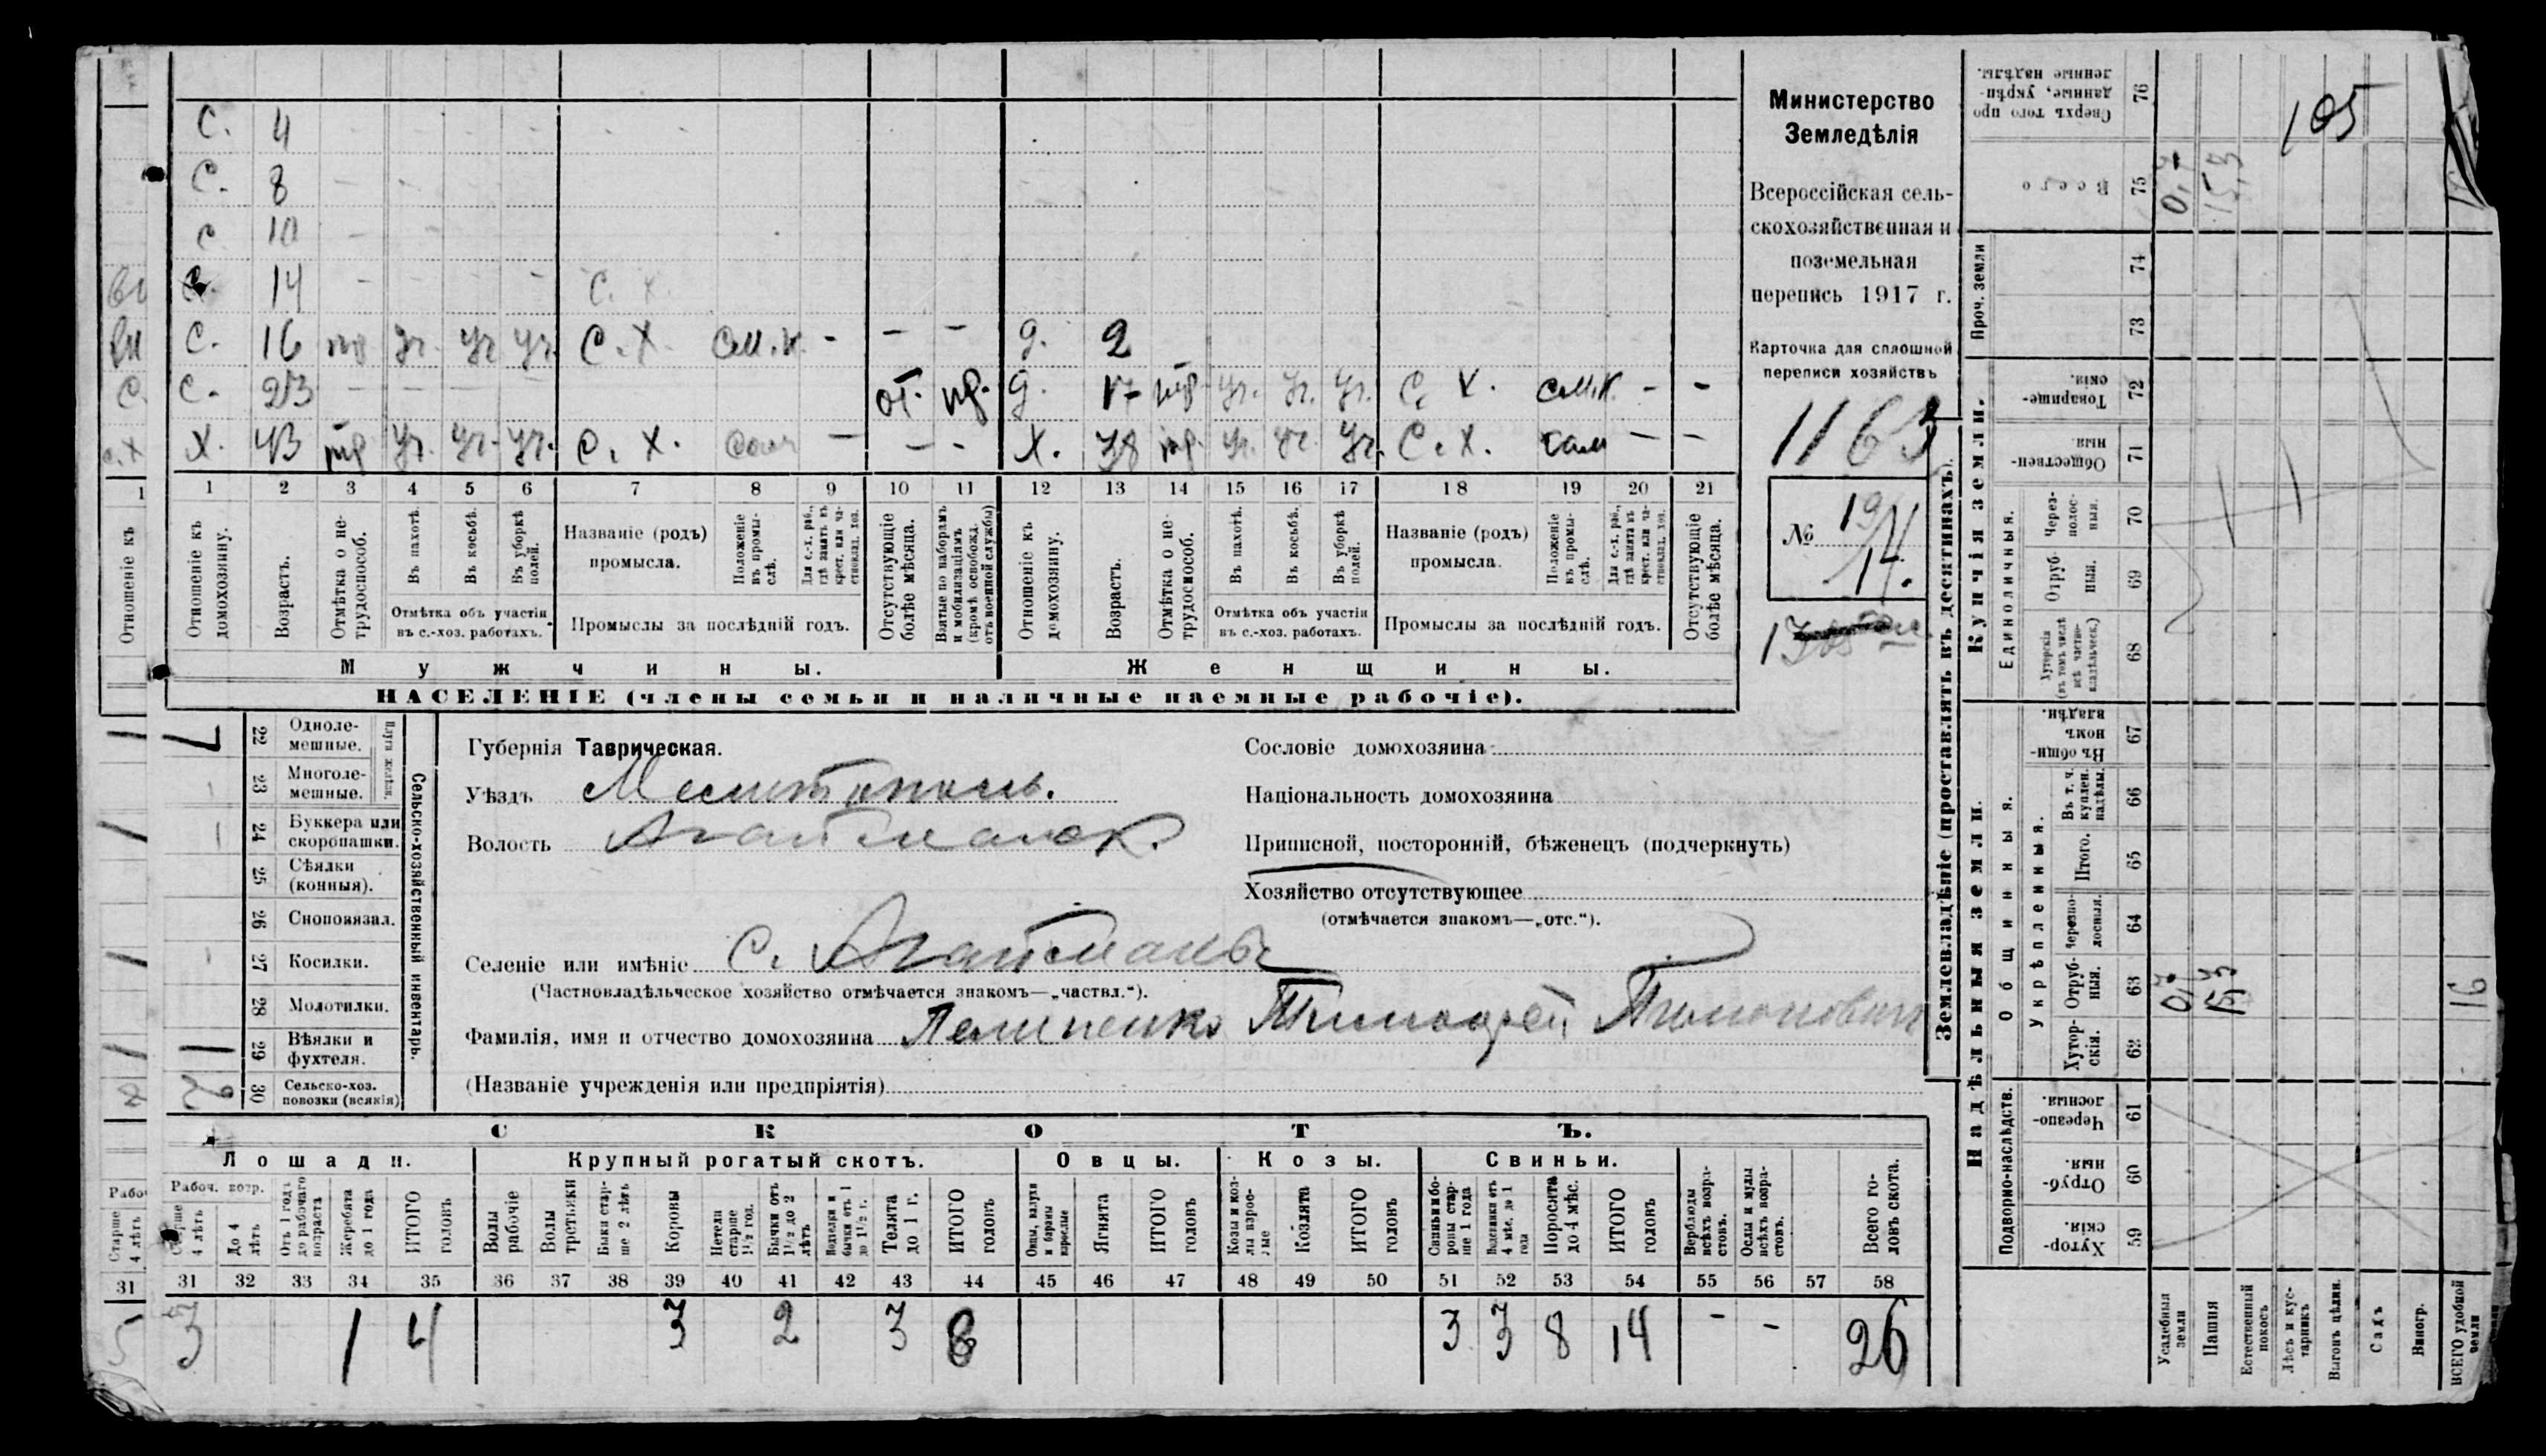 С. 4
С. 8
С 10
С. 14 С. Х.
С. 16 С. Х. см.к. - - - д. 2
С. 23 от. д. 17 уч. уч. уч. С. Х. см.к. - -
Х. 43 уч. уч. уч. С. Х. сам - - - Х. 38 уч. уч. уч. С. Х. сам - -
1 2 3 4 5 6 7 8 9 10 11 12 13 14 15 16 17 18 19 20 21
Отношеніе къ домохозяину.
Возрастъ.
Отмѣтка о нетрудоспособ.
Въ пахотѣ.
Въ косьбѣ.
Въ уборкѣ полей.
Отмѣтка объ участіи въ с.-хоз. работахъ.
Названіе (родъ) промысла.
Положеніе въ промыслѣ.
Для с.-х. раб., гдѣ занятъ въ крест. или частновлад. хоз.
Промыслы за послѣдній годъ.
Отсутствующіе болѣе мѣсяца.
Взятые по наборамъ и мобилизаціямъ (кромѣ освобожд. отъ военной службы)
Отношеніе къ домохозяину.
Возрастъ.
Отмѣтка о нетрудоспособ.
Въ пахотѣ.
Въ косьбѣ.
Въ уборкѣ полей.
Отмѣтка объ участіи въ с.-хоз. работахъ.
Названіе (родъ) промысла.
Положеніе въ промыслѣ.
Для с.-х. раб., гдѣ занятъ въ крест. или частновлад. хоз.
Промыслы за послѣдній годъ.
Отсутствующіе болѣе мѣсяца.
Мужчины.
Женщины.
НАСЕЛЕНІЕ (члены семьи и наличные наемные рабочіе).
Министерство
Земледѣлія
Всероссійская сель-
скохозяйственная и
поземельная
перепись 1917 г.
Карточка для сплошной
переписи хозяйствъ
1163
№
14.
22 Одноле-мешные.
23 Многоле-мешные.
Плуги желѣзн.
24 Буккера или скоропашки.
25 Сѣялки (конныя).
26 Сноповязал.
27 Косилки.
28 Молотилки.
1 29 Вѣялки и фухтеля.
30 Сельско-хоз. повозки (всякія)
Сельско-хозяйственный инвентарь.
Губернія Таврическая.
Уѣздъ Мелитополь.
Волость Агайманск.
Селеніе или имѣніе С. Агайманъ
(Частновладѣльческое хозяйство отмѣчается знакомъ—„частвл.“).
Фамилія, имя и отчество домохозяина Тимофей
(Названіе учрежденія или предпріятія)
Сословіе домохозяина
Національность домохозяина
Приписной, посторонній, бѣженецъ (подчеркнуть)
Хозяйство отсутствующее
(отмѣчается знакомъ—„отс.“).
СКОТЪ.
Лошади.
Крупный рогатый скотъ.
Овцы.
Козы.
Свиньи.
Рабоч. возр.
Старше 4 лѣтъ
До 4 лѣтъ
Отъ 1 года до рабочаго возраста
Жеребята до 1 года
ИТОГО головъ
Волы рабочіе
Волы третьяки
Быки старше 2 лѣтъ
Коровы
Нетели старше 1½ год.
Бычки отъ 1½ до 2 лѣтъ
Телята до 1 г.
ИТОГО головъ
Овцы, валухи и бараны взрослые
Ягнята
ИТОГО головъ
Козлята
ИТОГО головъ
Свиньи и боровы старше 1 года
Поросята до 4 мѣс.
ИТОГО головъ
Верблюды всѣхъ возрастовъ.
Ослы и мулы всѣхъ возрастовъ.
Всего головъ скота.
31 32 33 34 35 36 37 38 39 40 41 42 43 44 45 46 47 48 49 50 51 52 53 54 55 56 57 58
3 1 4 3 2 3 8 3 3 8 14 - - 26
Землевладѣніе (проставлять въ десятинахъ).
Купчія земли.
Надѣльныя земли.
76 Сверхъ того проданные, укрѣпленные надѣлы.
105
75 Всего 0,7 15,3
Проч. земли
74
73
72 Товарищескія.
71 Общественныя.
Единоличныя.
70 Черезполосныя.
69 Отрубныя.
68 Хуторскія (въ томъ числѣ всѣ частновладѣльческ.)
Общинныя.
67 Въ общинномъ владѣн.
Укрѣпленныя.
66 Въ т. ч. куплен. надѣлы.
65 Итого.
64 Черезполосныя.
63 Отрубныя. 0,7 15,3 16
62 Хуторскія.
Подворно-наслѣдств.
61 Черезполосныя.
60 Отрубныя.
59 Хуторскія.
Усадебныя земли
Пашня
Естественный покосъ
Лѣсъ и кустарникъ
Выгонъ цѣлин.
Садъ
Виногр.
ВСЕГО удобной земли
Отношеніе къ
1
Рабо
Старше 4 лѣтъ
31
5